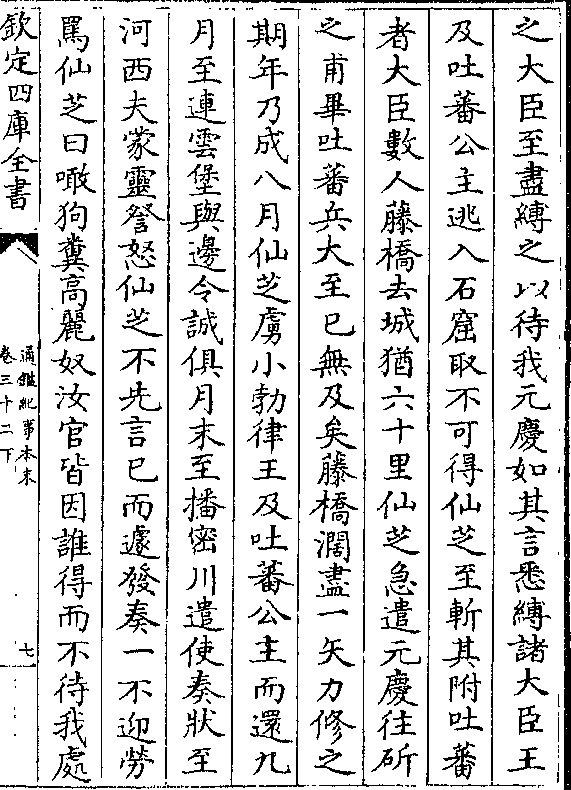 之大臣至盡縛之以待我元慶如其言悉縛諸大臣王
及吐蕃公主逃入石窟取不可得仙芝至斬其附吐蕃
者大臣數人藤橋去城猶六十里仙芝急遣元慶往斫
之甫畢吐蕃兵大至已無及矣藤橋濶盡一矢力修之
期年乃成八月仙芝虜小勃律王及吐蕃公主而還九
月至連雲堡與邊令誠俱月末至播密川遣使奏狀至
河西夫蒙靈詧怒仙芝不先言已而遽發奏一不迎勞
罵仙芝曰噉狗糞高麗奴汝官皆因誰得而不待我處
欽定四庫全書
通鑑紀事本末
卷三十二下
七